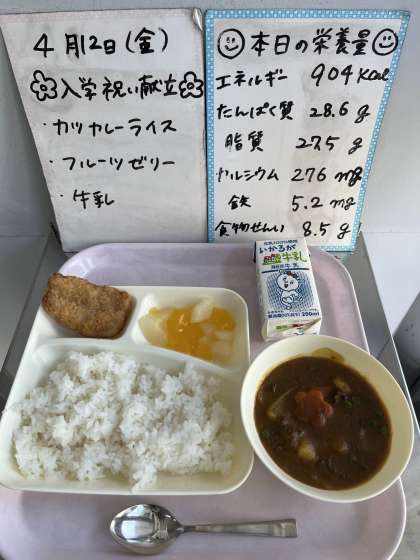 4月12日(金)
入学祝い献立
・カツカレーライス
・フルーツゼリー
・牛乳
本日の栄養量
エネルギー 904 kcal
たんぱく質 28.6 g
脂質 27.5 g
カルシウム 276 mg
鉄 5.2 mg
食物せんい 8.5 g
いかるが
牛乳
200ml